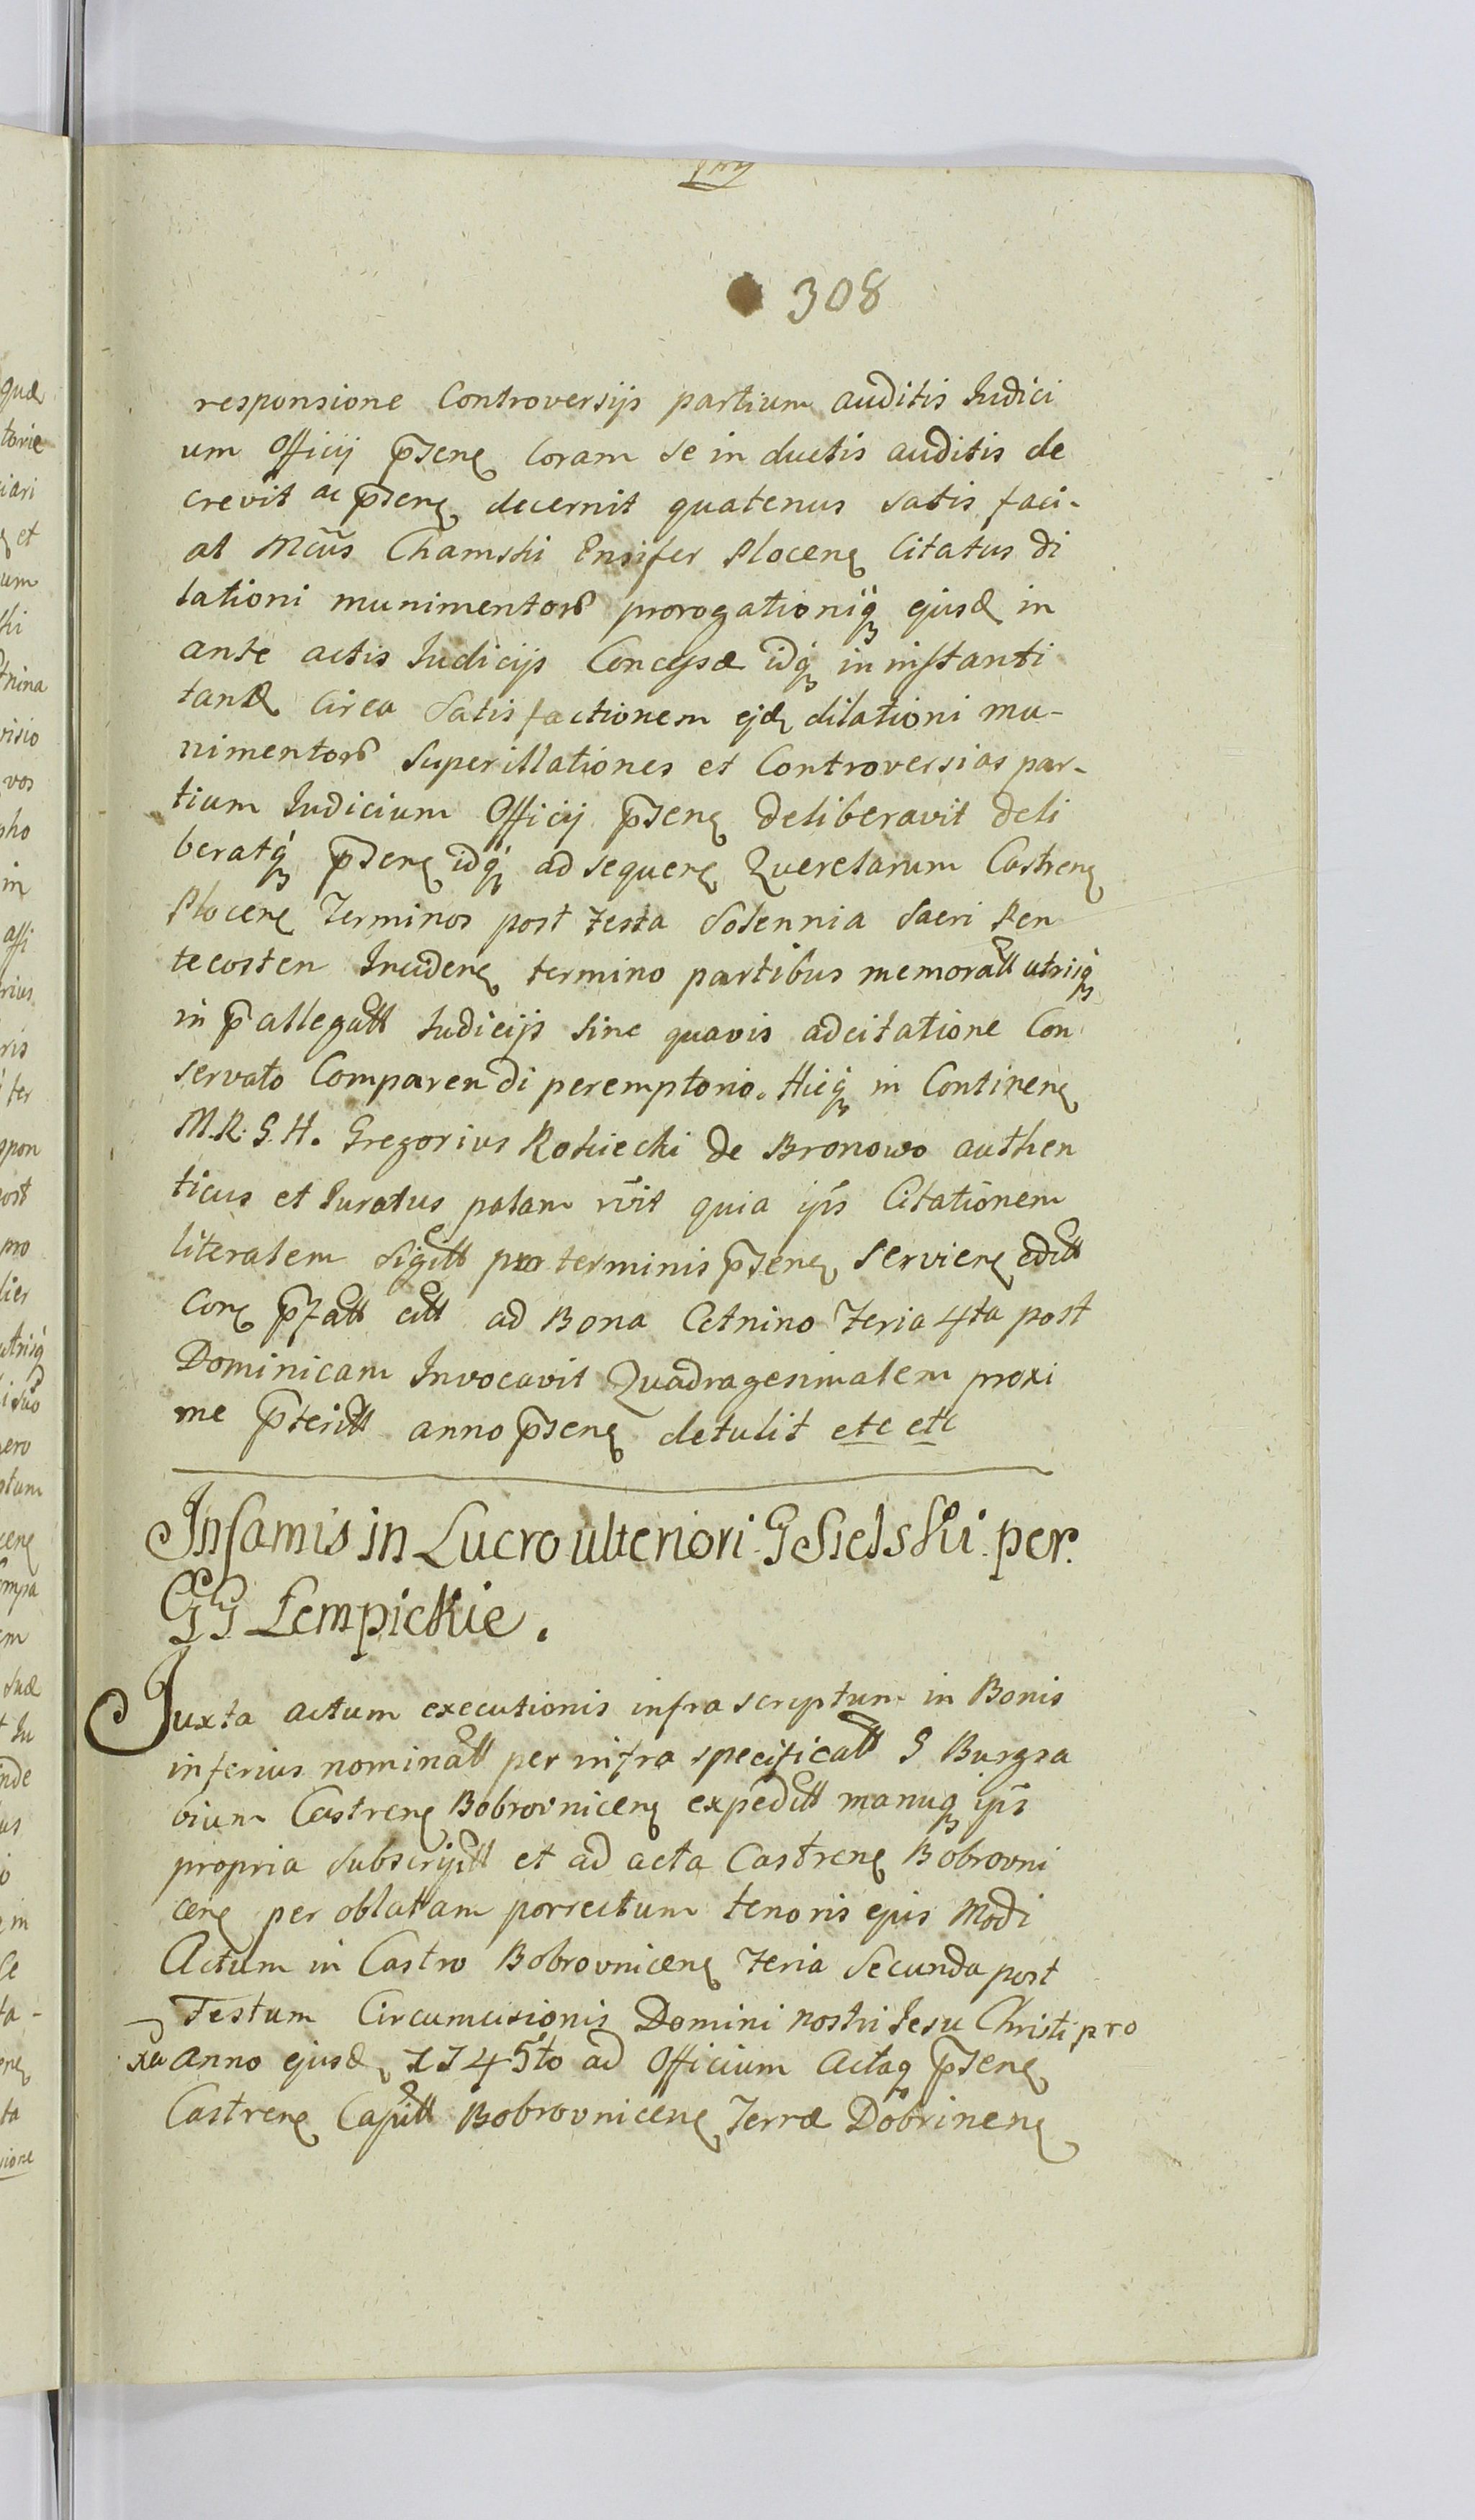 308
responsione Controversijs partium auditis Judici
um Officij p̄seng Coram se in ductis auditis de
crevit ac p̄seng decernit quatenus satis faci-
at Mcūs Chamski Ensifer Ploceng Citatus di
lationi munimentorū prorogationiq; ejusd in
ante actis Judicijs Concessæ idq; in instanti
tand Circa Satisfactionem ejd dilationi mu-
nimentorū Super illationes et Controversias par-
tium Judicium Officij p̄seng deliberavit deli
beratq; p̄seng idq; ad sequeng Querelarum Castreng
Ploceng Terminos post Festa Solennia Sacri Pen
tecosten Incideng termino partibus memoratt utrisq;
in p̄allegatt Judicijs sine quavis adcitatione Con
servato Comparendi peremptorio. Hicq; in Contineng
M.R.G.H. Gregorius Rokicki de Bronowo authen
ticus et Juratus palam rīit quia ip̄s Citationem
literalem Sigitt pro terminis p̄seng Servieng editt
Cong p̄fatt citt ad Bona Cetnino Feria 4ta post
Dominicam Invocavit Quadragesimalem proxi
me p̄teritt anno p̄seng detulit etc etc
Infamis in Lucro ulteriori G Sielski per.
GG Lempickie.
Juxta actum executionis infra scriptum in Bonis
inferius nominatt per infra specificatt G Burgra
vium Castreng Bobrovniceng expeditt manuq; ip̄s
propria subscriptt et ad acta Castreng Bobrovni
ceng per oblatam porrectum tenoris ejus modi
Actum in Castro Bobrovniceng Feria Secunda post
Festum Circumcisionis Domini nostri Jesu Christi pro
xa anno ejusd 1745to ad Officium Actaq p̄seng
Castreng Capitt Bobrovniceng Terræ Dobrineng